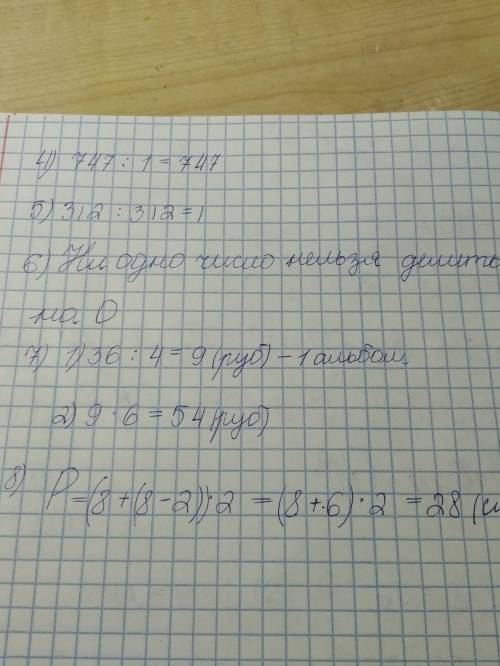 4) 747 : 1 = 747
5) 312 : 312 = 1
6) Ни одно число нельзя делить
на 0
7) 1) 36 : 4 = 9 (руб) - 1 альбом.
2) 9 · 6 = 54 (руб)
8) P = (8 + (8 - 2)) · 2 = (8 + 6) · 2 = 28 (см